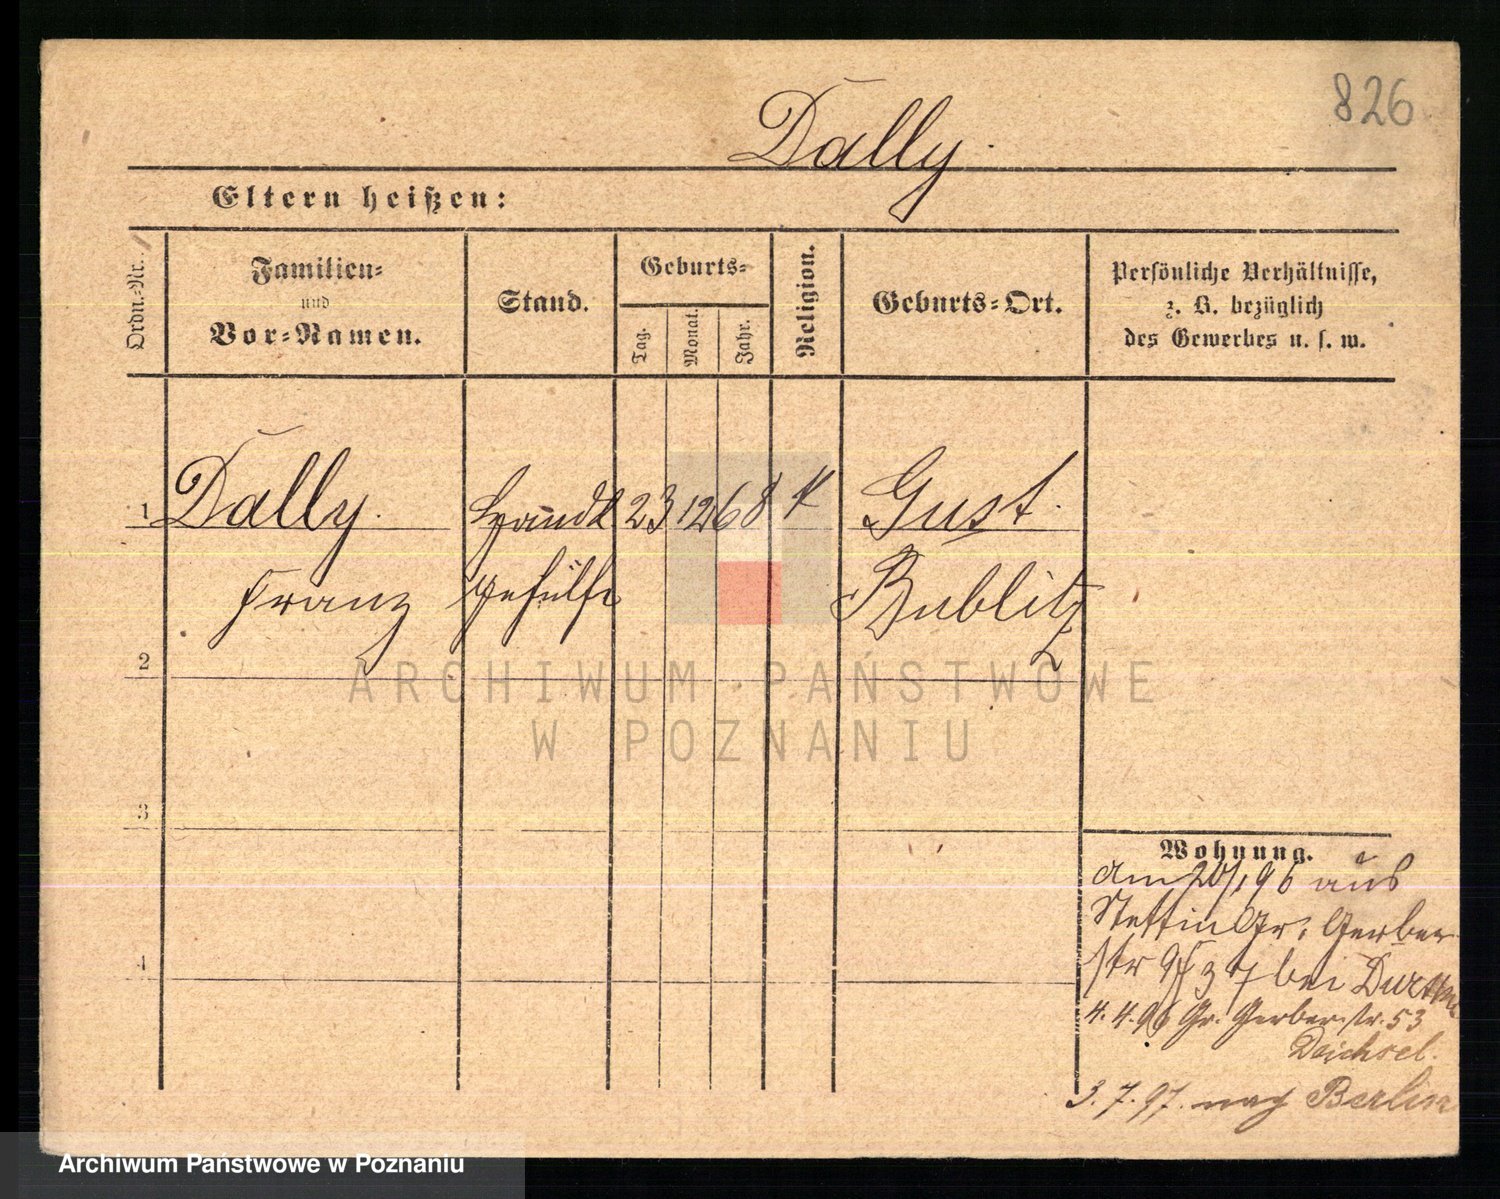 826
Dally.
Eltern heißen:
Ordn.-Nr.
Familien-
und
Vor-Namen.
Stand.
Geburts-
Tag.
Monat.
Jahr.
Religion.
Geburts-Ort.
Persönliche Verhältnisse,
z. B. bezüglich
des Gewerbes u. s. w.
1 Dally. Handl 23 12 68 K Gust.
Franz gehülfe Bublitz
2
ARCHIWUM PAŃSTWOWE
W POZNANIU
3
Wohnung.
am 20/1 96 aus
Stettin Gr. Gerber
str bei
4
4. 4. 96 Gr. Gerber str. 53
Deichsel.
3. 7. 97. nach Berlin
Archiwum Państwowe w Poznaniu